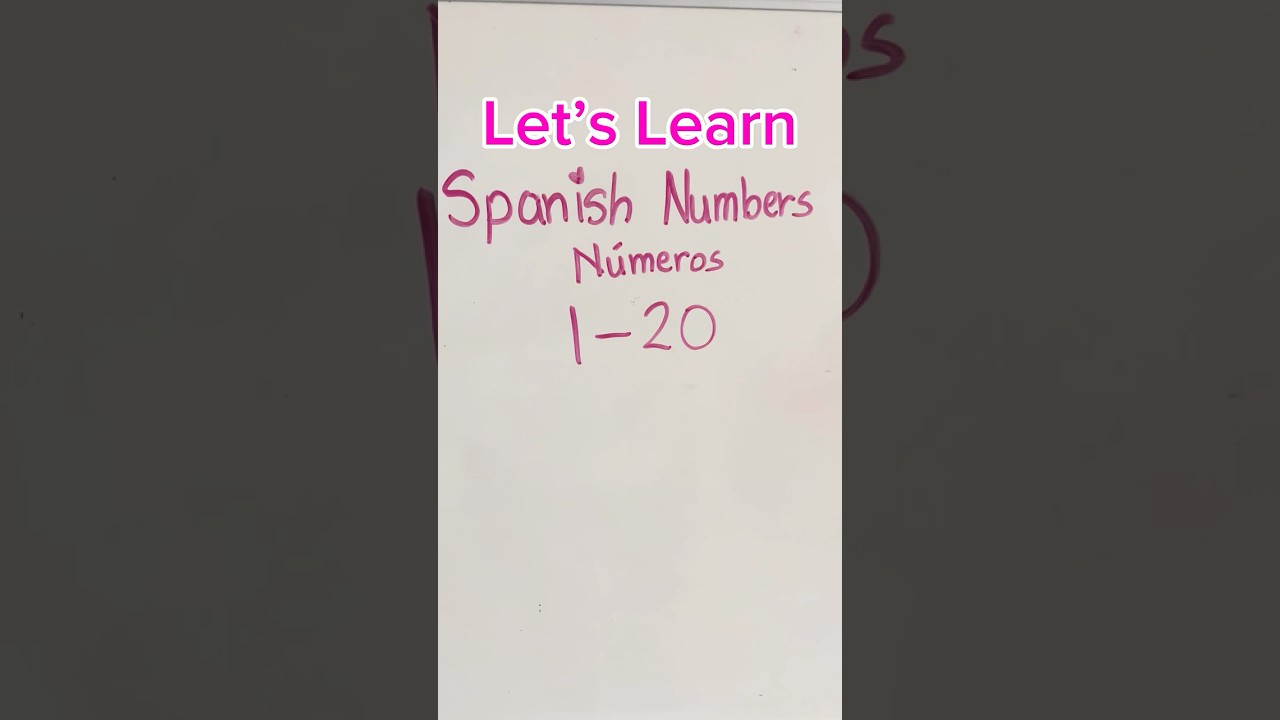 Let's Learn
Spanish Numbers
Números
1-20